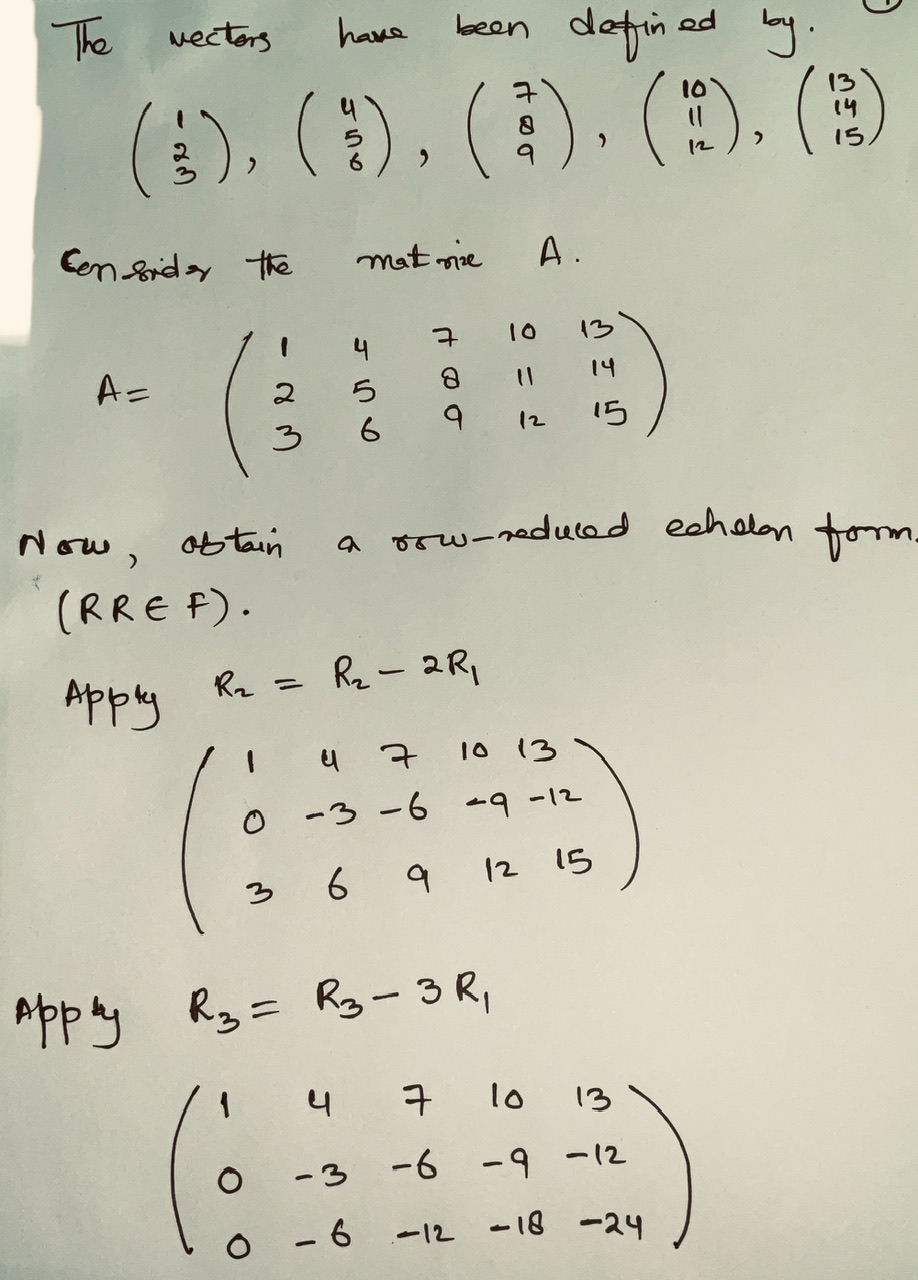 The vectors have been defined by.
(1 2 3), (4 5 6), (7 8 9), (10 11 12), (13 14 15)
Consider the matrix A.
A = ( 1 4 7 10 13
2 5 8 11 14
3 6 9 12 15 )
Now, obtain a row-reduced echelon form.
(RREF).
Apply R₂ = R₂ - 2R₁
( 1 4 7 10 13
0 -3 -6 -9 -12
3 6 9 12 15 )
Apply R₃ = R₃ - 3R₁
( 1 4 7 10 13
0 -3 -6 -9 -12
0 -6 -12 -18 -24 )